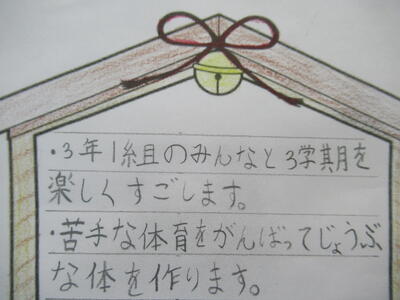 ・3年1組のみんなと3学期を
楽しくすごします。
・苦手な体育をがんばってじょうぶ
な体を作ります。